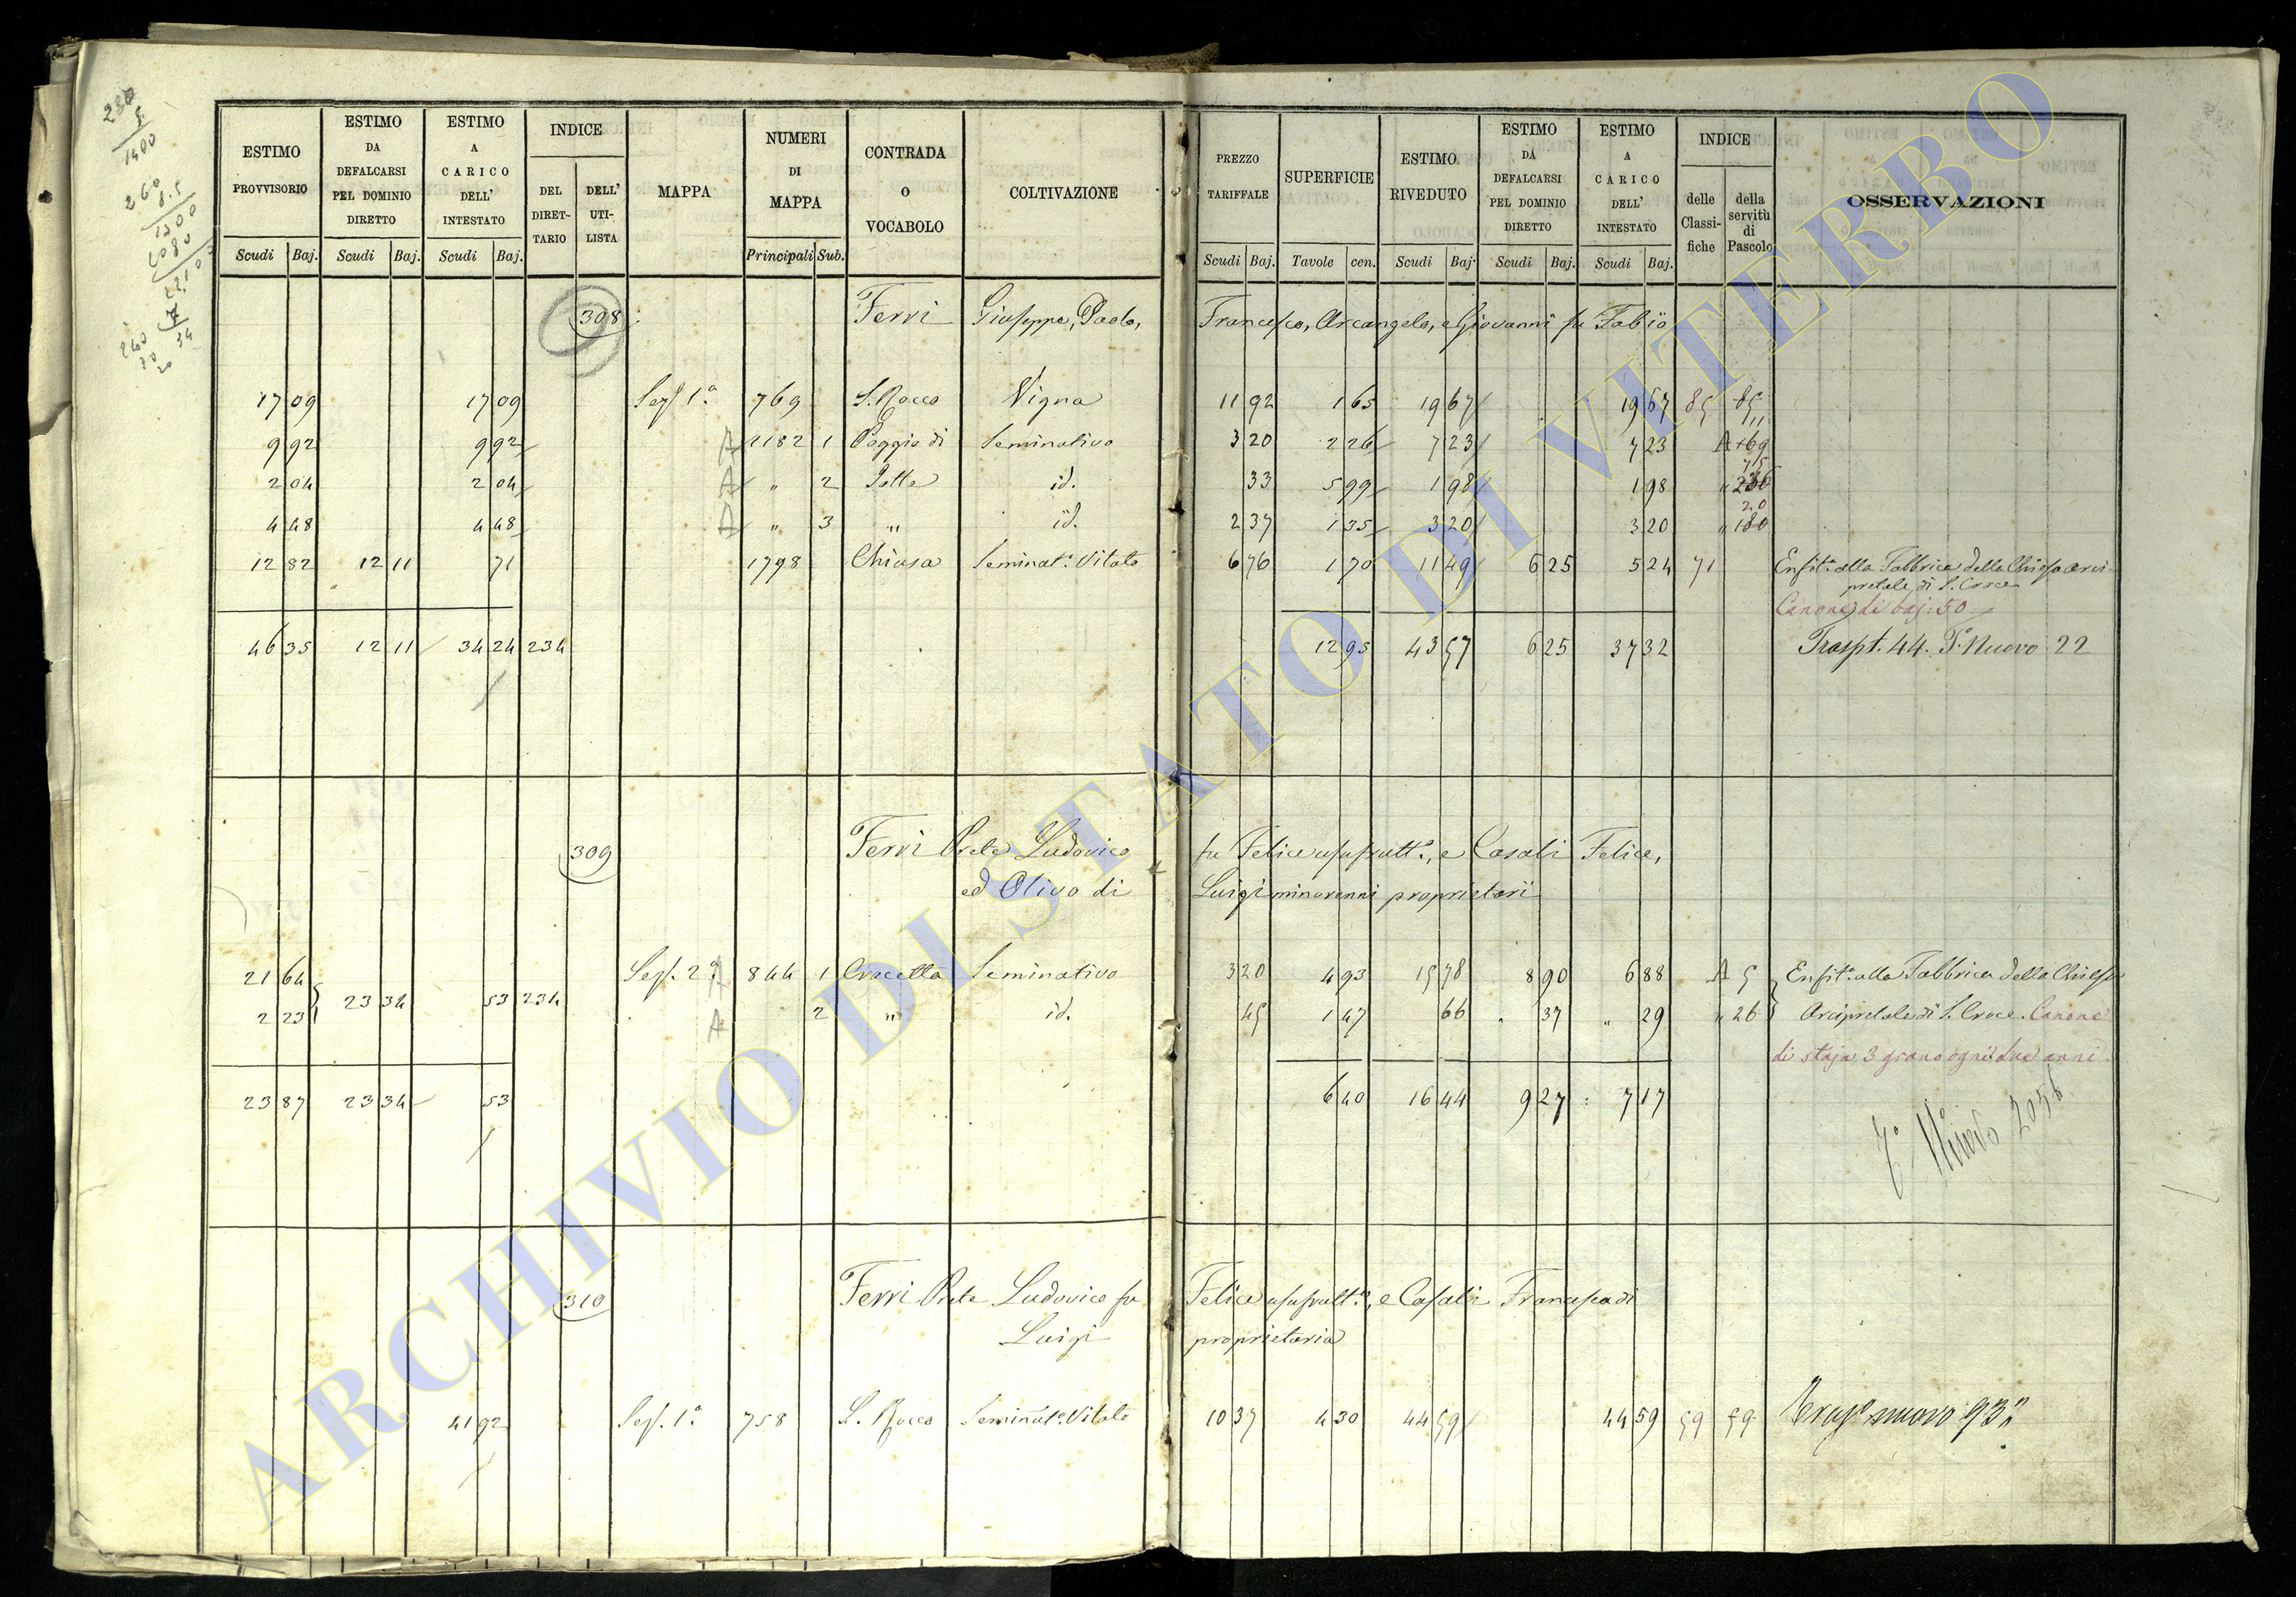 ARCHIVIO DI STATO DI VITERBO
ESTIMO PROVVISORIO
ESTIMO DA DEFALCARSI PEL DOMINIO DIRETTO
ESTIMO A CARICO DELL' INTESTATO
INDICE
DEL DIRET- TARIO
DELL' UTI- LISTA
MAPPA
NUMERI DI MAPPA
CONTRADA O VOCABOLO
COLTIVAZIONE
PREZZO TARIFFALE
SUPERFICIE
ESTIMO RIVEDUTO
ESTIMO DA DEFALCARSI PEL DOMINIO DIRETTO
ESTIMO A CARICO DELL' INTESTATO
INDICE
delle Classi- fiche
della servitù di Pascolo
OSSERVAZIONI
Scudi Baj. Scudi Baj. Scudi Baj. Principali Sub. Scudi Baj. Tavole cen. Scudi Baj. Scudi Baj. Scudi Baj.
308 Ferri Giuseppe, Paolo, Francesco, Arcangelo, e Giovanni fu Fabio
17 09 17 09 Sez. 1a. 769 S. Rocco Vigna 11 92 1 65 19 67 19 67 85 85
9 92 9 92 A 1182 1 Poggio di Seminativo 3 20 2 26 7 23 7 23 A
2 04 2 04 A " 2 id. 33 5 99 1 98 1 98 "
4 48 4 48 A " 3 " id. 2 37 1 35 3 20 3 20 " 180
12 82 12 11 71 1798 Chiusa Seminat.o Vitato 6 76 1 70 11 49 6 25 5 24 71 Enfit.a alla Fabbrica della Chiesa arci-
pretale di S. Croce
Canone di baj: 50
46 35 12 11 34 24 234 12 95 43 57 6 25 37 32 Traspt. 44. T.o Nuovo 22
309 Ferri Prete Ludovico fu Felice usufrutt.o, e Casali Felice,
ed Olivo di Luigi minorenni proprietarii
21 64 Sez. 2a. A 844 1 Crocetta Seminativo 3 20 4 93 15 78 8 90 6 88 A 5 Enfit.a alla Fabbrica della Chiesa
2 23 23 34 53 234 A 2 " id. 45 1 47 66 " 37 " 29 " 26 Arcipretale di S. Croce. Canone
di staja 3 grano ogni due anni
23 87 23 34 53 6 40 16 44 9 27 7 17
T.o Nuovo 2056
310 Ferri Prete Ludovico fu Felice usufrutt.o, e Casali Francesca di
Luigi proprietaria
41 92 Sez. 1a. 758 S. Rocco Seminat.o Vitato 10 37 4 30 44 59 44 59 59 59 nuovo 93